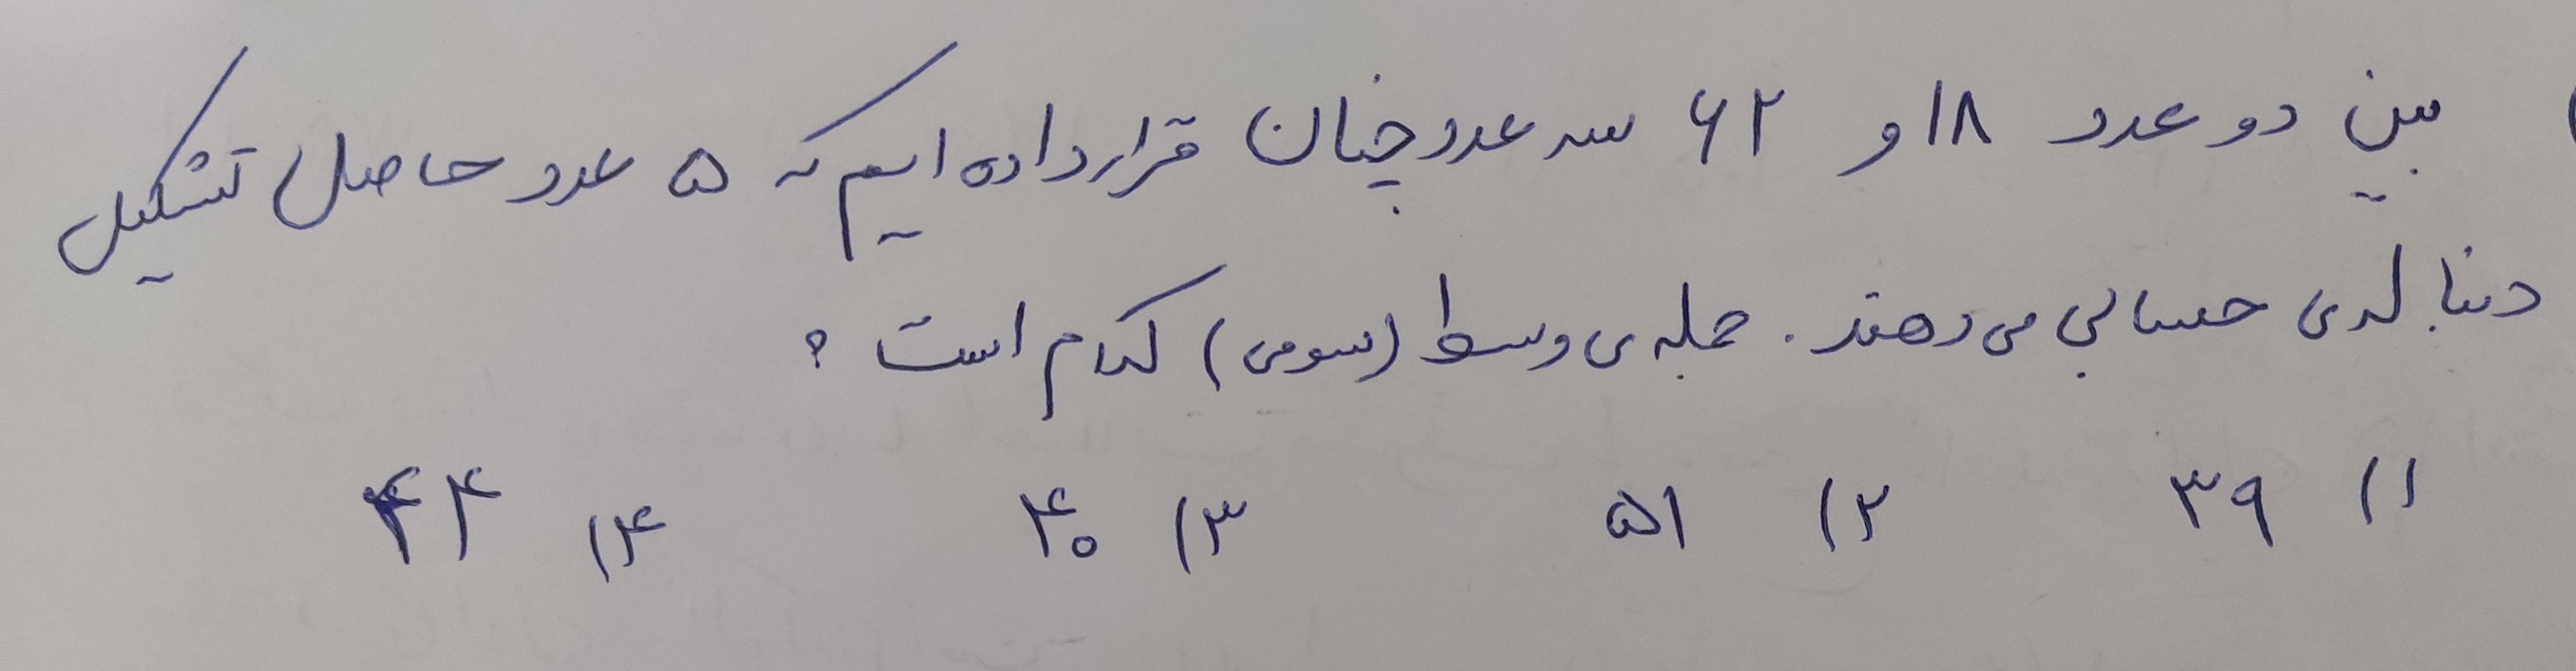 بین دو عدد ۱۸ و ۶۲ سه عدد چنان قرار داده ایم که ۵ عدد حاصل تشکیل
دنباله‌ی حسابی می دهند. جمله ی وسط (سومی) کدام است؟
۱) ۳۹ ۲) ۵۱ ۳) ۴۰ ۴) ۴۴